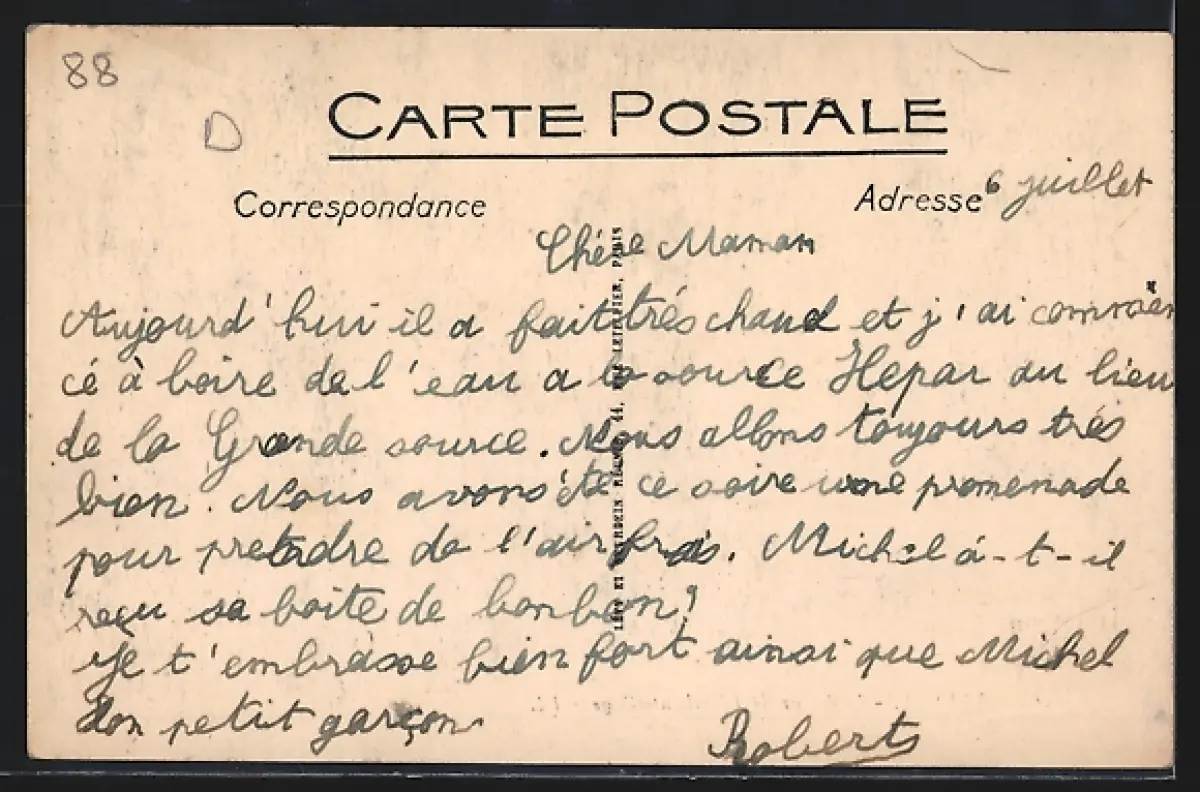 88
D
CARTE POSTALE
Correspondance
Adresse 6 juillet
Chére Maman
Aujourd'hui il a fait trés chaud et j'ai commen
cé à boire de l'eau a la source Hepar au lieu
de la Grande source. Nous allons toujours trés
bien. Nous avons été ce soire une promenade
pour pretendre de l'air frais. Michel á-t-il
reçu sa boite de bonbon?
Je t'embrasse bien fort ainsi que Michel
ton petit garçon
Robert
LÉVY ET NEURDEIN RÉUNIS, 44, RUE LETELLIER, PARIS